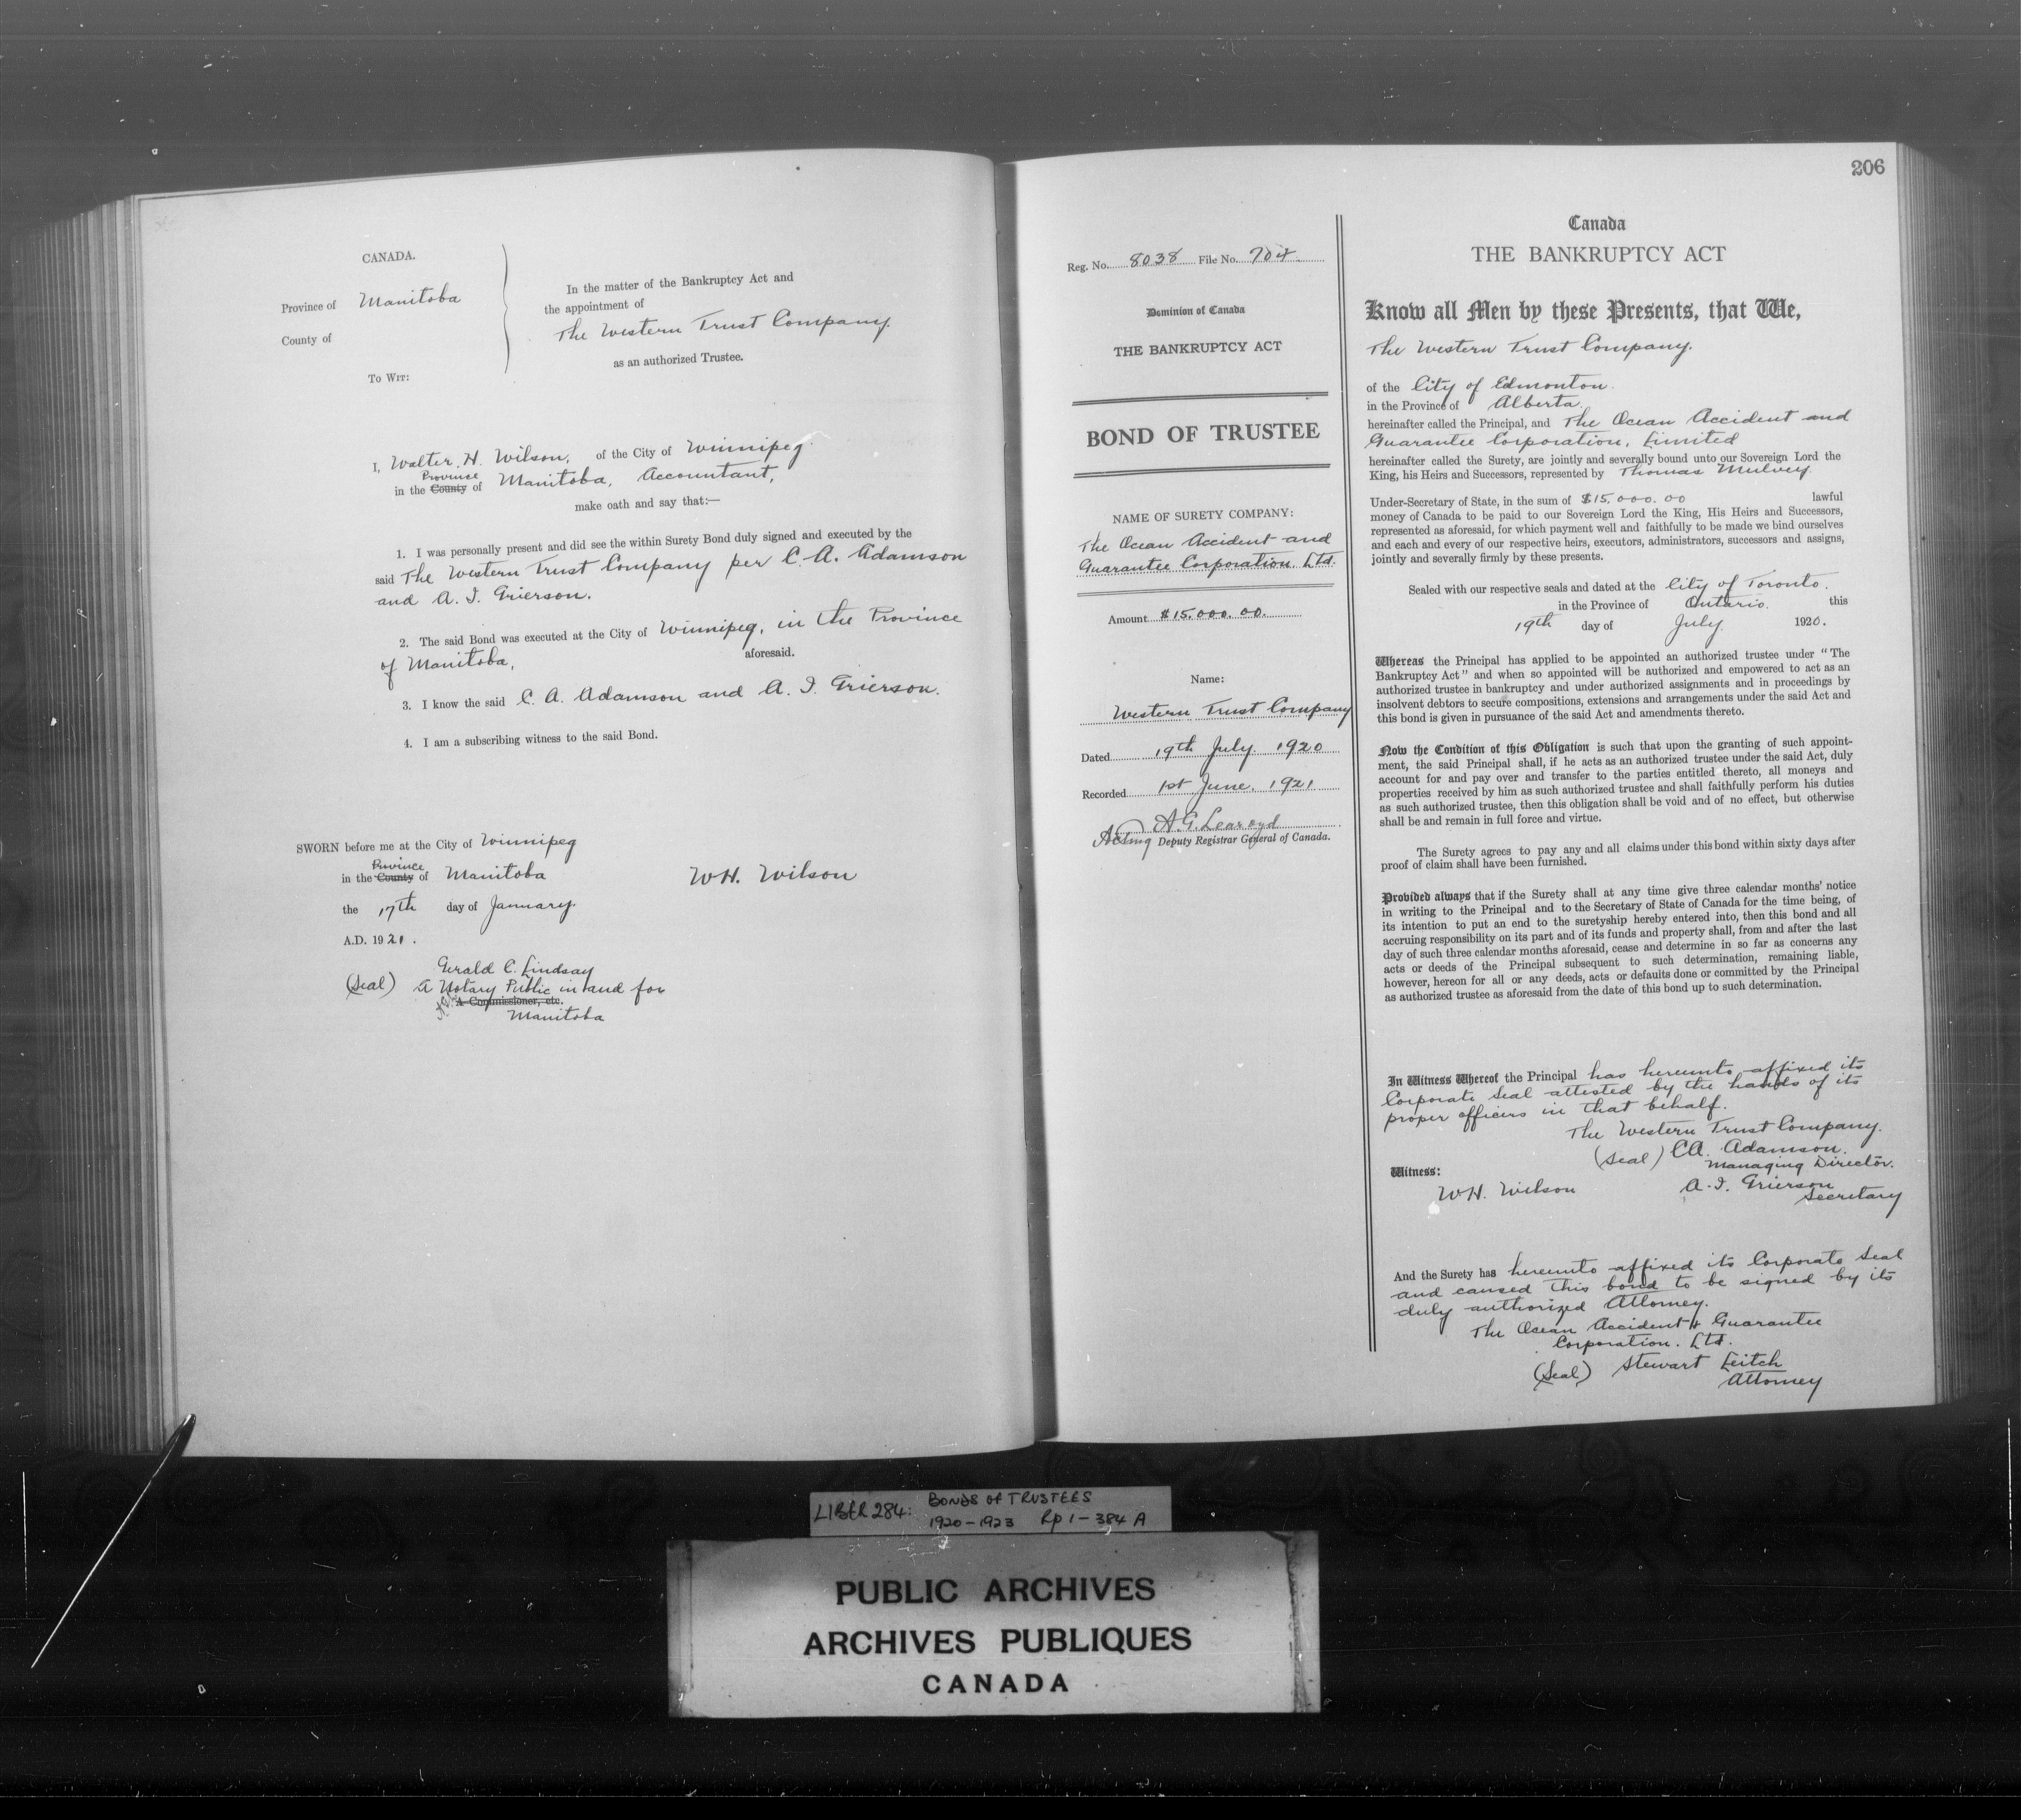 CANADA.
Province of Manitoba
County of
To Wit:
In the matter of the Bankruptcy Act and
the appointment of
The Western Trust Company.
as an authorized Trustee.
I, Walter. H. Wilson, of the City of Winnipeg
Province
in the County of Manitoba, Accountant,
make oath and say that:—
1. I was personally present and did see the within Surety Bond duly signed and executed by the
said The Western Trust Company per C. A. Adamson
and A. I. Grierson.
2. The said Bond was executed at the City of Winnipeg, in the Province
of Manitoba, aforesaid.
3. I know the said C. A. Adamson and A. I. Grierson.
4. I am a subscribing witness to the said Bond.
SWORN before me at the City of Winnipeg
Province
in the County of Manitoba
the 17th day of January.
A.D. 1921.
W.H. Wilson
Gerald C. Lindsay
(Seal) A Notary Public in and for
A Commissioner, etc.
Manitoba
206
Reg. No. 8038 File No. 704.
Dominion of Canada
THE BANKRUPTCY ACT
BOND OF TRUSTEE
NAME OF SURETY COMPANY:
The Ocean Accident and
Guarantee Corporation Ltd.
Amount $15.000.00.
Name:
Western Trust Company
Dated 19th July. 1920
Recorded 1st June. 1921
A.G. Learoyd
Acting Deputy Registrar General of Canada.
Canada
THE BANKRUPTCY ACT
Know all Men by these Presents, that We,
The Western Trust Company.
of the City of Edmonton.
in the Province of Alberta.
hereinafter called the Principal, and The Ocean Accident and
Guarantee Corporation, Limited
hereinafter called the Surety, are jointly and severally bound unto our Sovereign Lord the
King, his Heirs and Successors, represented by Thomas Mulvey.
Under-Secretary of State, in the sum of $15.000.00 lawful
money of Canada to be paid to our Sovereign Lord the King, His Heirs and Successors,
represented as aforesaid, for which payment well and faithfully to be made we bind ourselves
and each and every of our respective heirs, executors, administrators, successors and assigns,
jointly and severally firmly by these presents.
Sealed with our respective seals and dated at the City of Toronto.
in the Province of Ontario. this
19th day of July. 1920.
Whereas the Principal has applied to be appointed an authorized trustee under "The
Bankruptcy Act" and when so appointed will be authorized and empowered to act as an
authorized trustee in bankruptcy and under authorized assignments and in proceedings by
insolvent debtors to secure compositions, extensions and arrangements under the said Act and
this bond is given in pursuance of the said Act and amendments thereto.
Now the Condition of this Obligation is such that upon the granting of such appoint-
ment, the said Principal shall, if he acts as an authorized trustee under the said Act, duly
account for and pay over and transfer to the parties entitled thereto, all moneys and
properties received by him as such authorized trustee and shall faithfully perform his duties
as such authorized trustee, then this obligation shall be void and of no effect, but otherwise
shall be and remain in full force and virtue.
The Surety agrees to pay any and all claims under this bond within sixty days after
proof of claim shall have been furnished.
Provided always that if the Surety shall at any time give three calendar months' notice
in writing to the Principal and to the Secretary of State of Canada for the time being, of
its intention to put an end to the suretyship hereby entered into, then this bond and all
accruing responsibility on its part and of its funds and property shall, from and after the last
day of such three calendar months aforesaid, cease and determine in so far as concerns any
acts or deeds of the Principal subsequent to such determination, remaining liable,
however, hereon for all or any deeds, acts or defaults done or committed by the Principal
as authorized trustee as aforesaid from the date of this bond up to such determination.
In Witness Whereof the Principal has hereunto affixed its
Corporate Seal attested by the hands of its
proper officers in that behalf.
The Western Trust Company.
(Seal) C.A. Adamson.
Managing Director.
Witness:
W.H. Wilson
A. I. Grierson
Secretary
And the Surety has hereunto affixed its Corporate Seal
and caused this bond to be signed by its
duly authorized Attorney.
The Ocean Accident & Guarantee
Corporation. Ltd.
(Seal) Stewart Leitch
Attorney
LIBER 284: BONDS OF TRUSTEES
1920-1923 Rp 1-384 A
PUBLIC ARCHIVES
ARCHIVES PUBLIQUES
CANADA